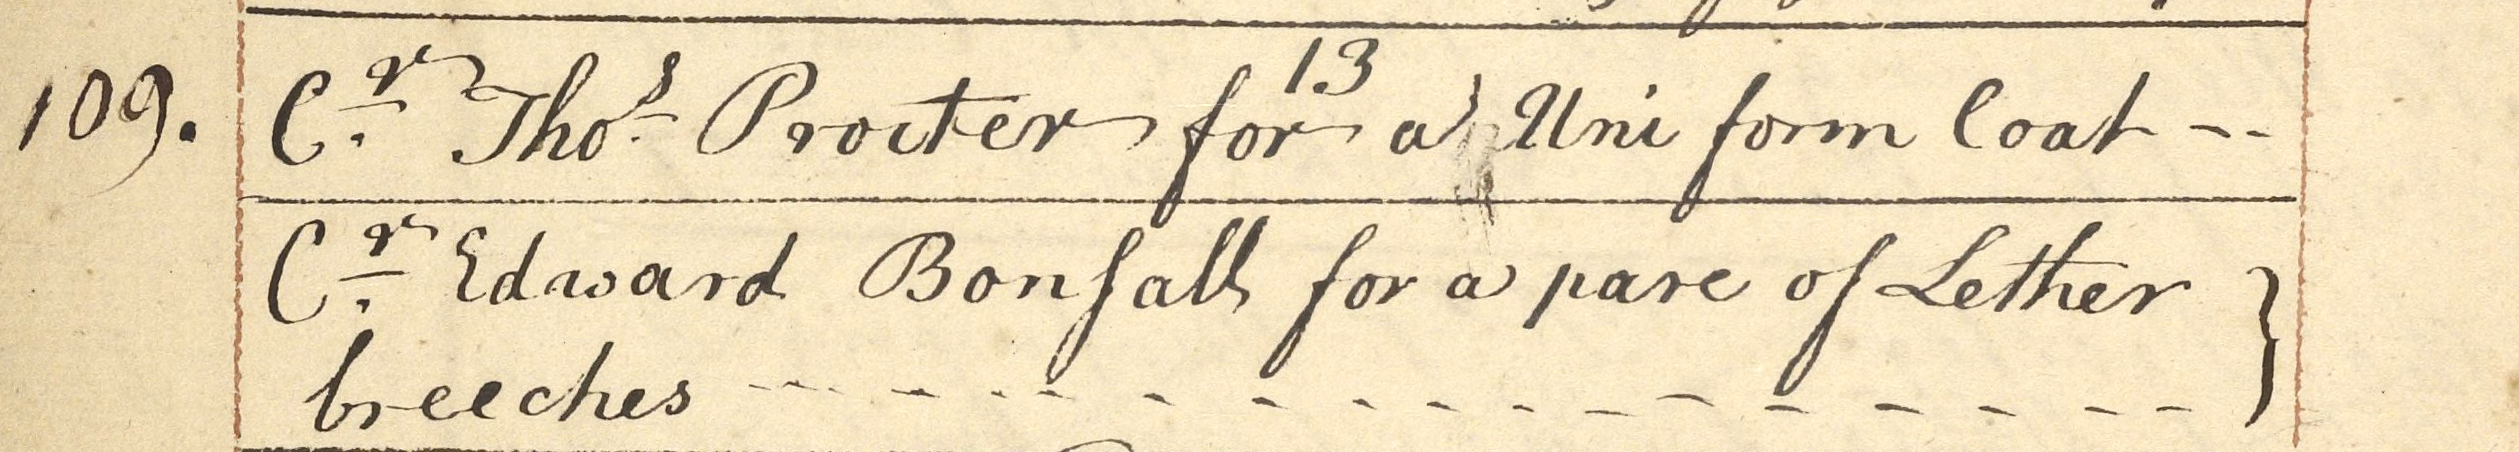 13
109. Cr. Thos. Procter for a Uni form Coat --
Cr. Edward Bonsall for a pare of Lether }
breeches - - - - - - - - - - - - - - -